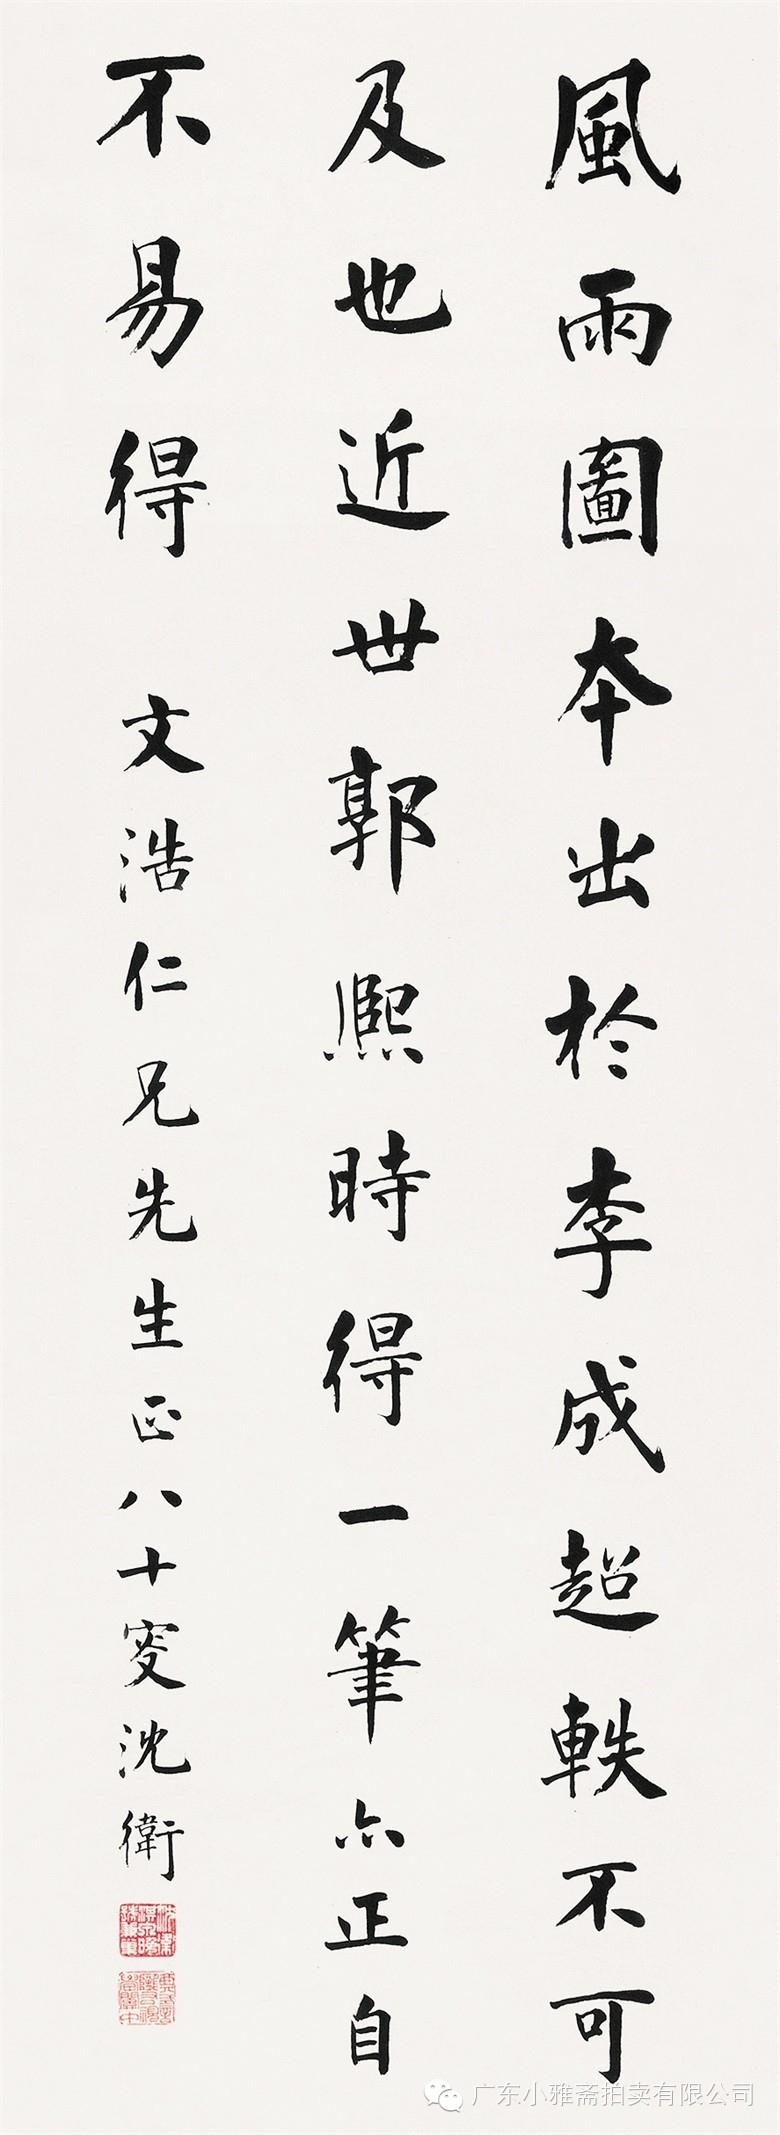 風雨圖本出於李成超軼不可
及也近世郭熙時得一筆亦正自
不易得 文浩仁兄先生正八十叟沈衛
广东小雅斋拍卖有限公司